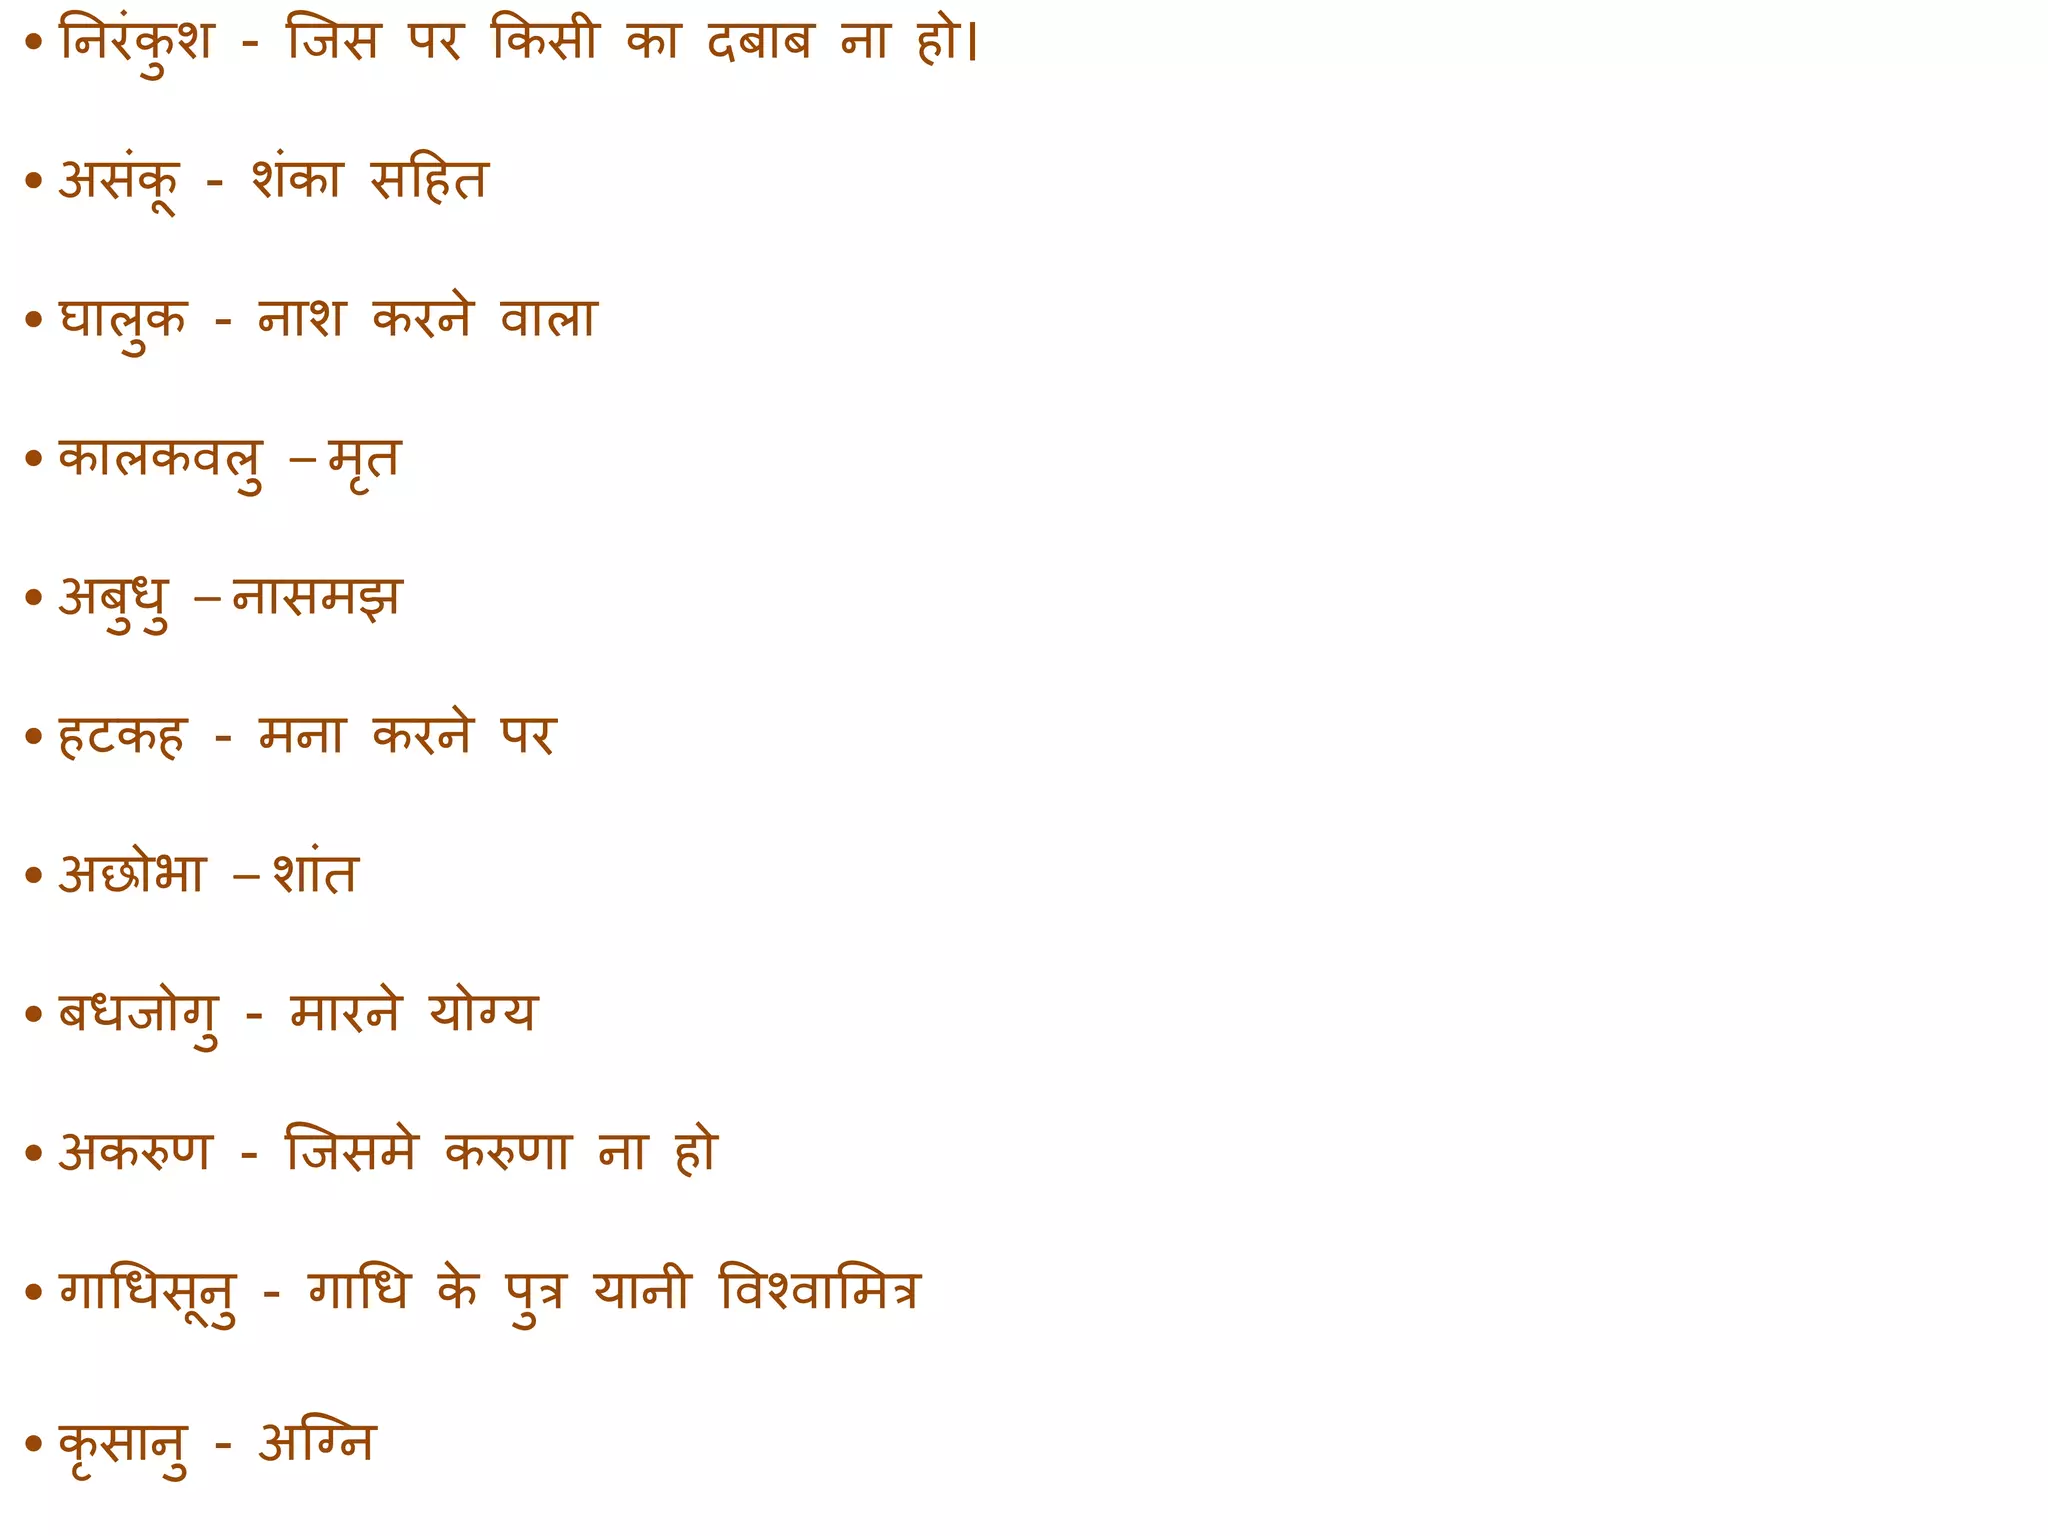 • निरंकुश - जिस पर किसी का दबाब ना हो।
• असंकू - शंका सहित
• घालुक - नाश करने वाला
• कालकवलु – मृत
• अबुधु – नासमझ
• हटकह - मना करने पर
• अछोभा – शांत
• बधजोगु - मारने योग्य
• अकरुण - जिसमे करुणा ना हो
• गाधिसूनु - गाधि के पुत्र यानी विश्वामित्र
• कृसानु - अग्नि